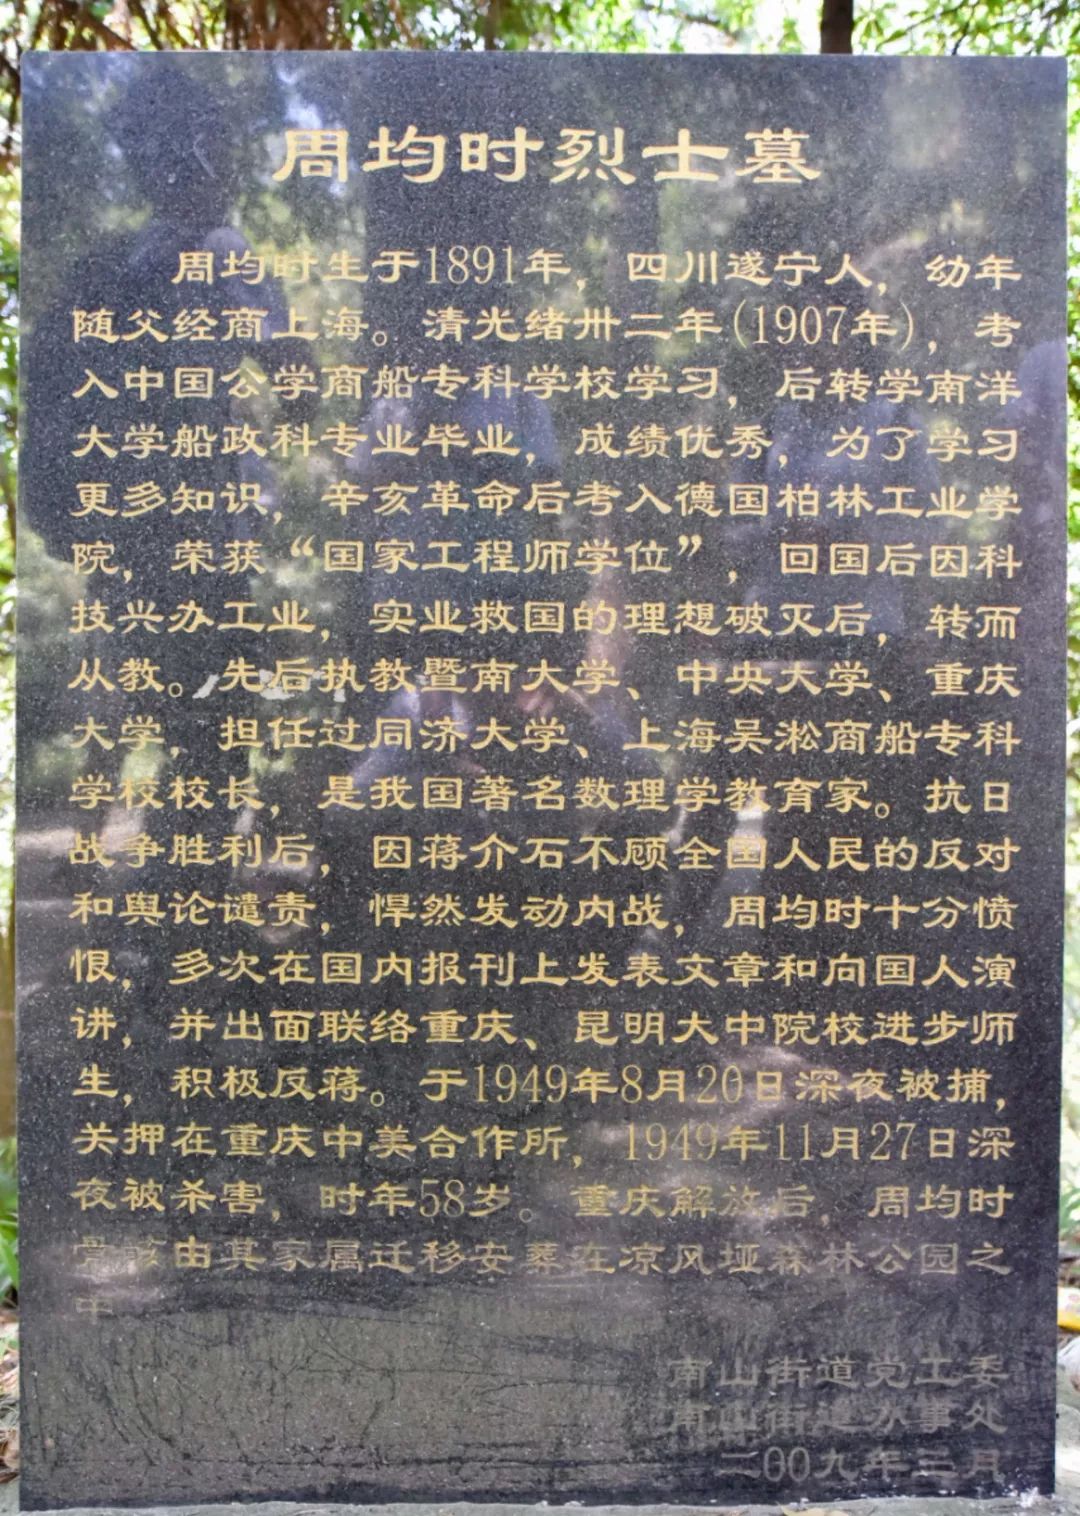 周均时烈士墓
周均时生于1891年，四川遂宁人，幼年
随父经商上海。清光绪卅二年(1907年)，考
入中国公学商船专科学校学习，后转学南洋
大学船政科专业毕业，成绩优秀，为了学习
更多知识，辛亥革命后考入德国柏林工业学
院，荣获“国家工程师学位”，回国后因科
技兴办工业，实业救国的理想破灭后，转而
从教。先后执教暨南大学、中央大学、重庆
大学，担任过同济大学、上海吴淞商船专科
学校校长，是我国著名数理学教育家。抗日
战争胜利后，因蒋介石不顾全国人民的反对
和舆论谴责，悍然发动内战，周均时十分愤
恨，多次在国内报刊上发表文章和向国人演
讲，并出面联络重庆、昆明大中院校进步师
生，积极反蒋。于1949年8月20日深夜被捕，
关押在重庆中美合作所，1949年11月27日深
夜被杀害，时年58岁。重庆解放后，周均时
骨骸由其家属迁移安葬在凉风垭森林公园之
中
南山街道党工委
南山街道办事处
二00九年三月